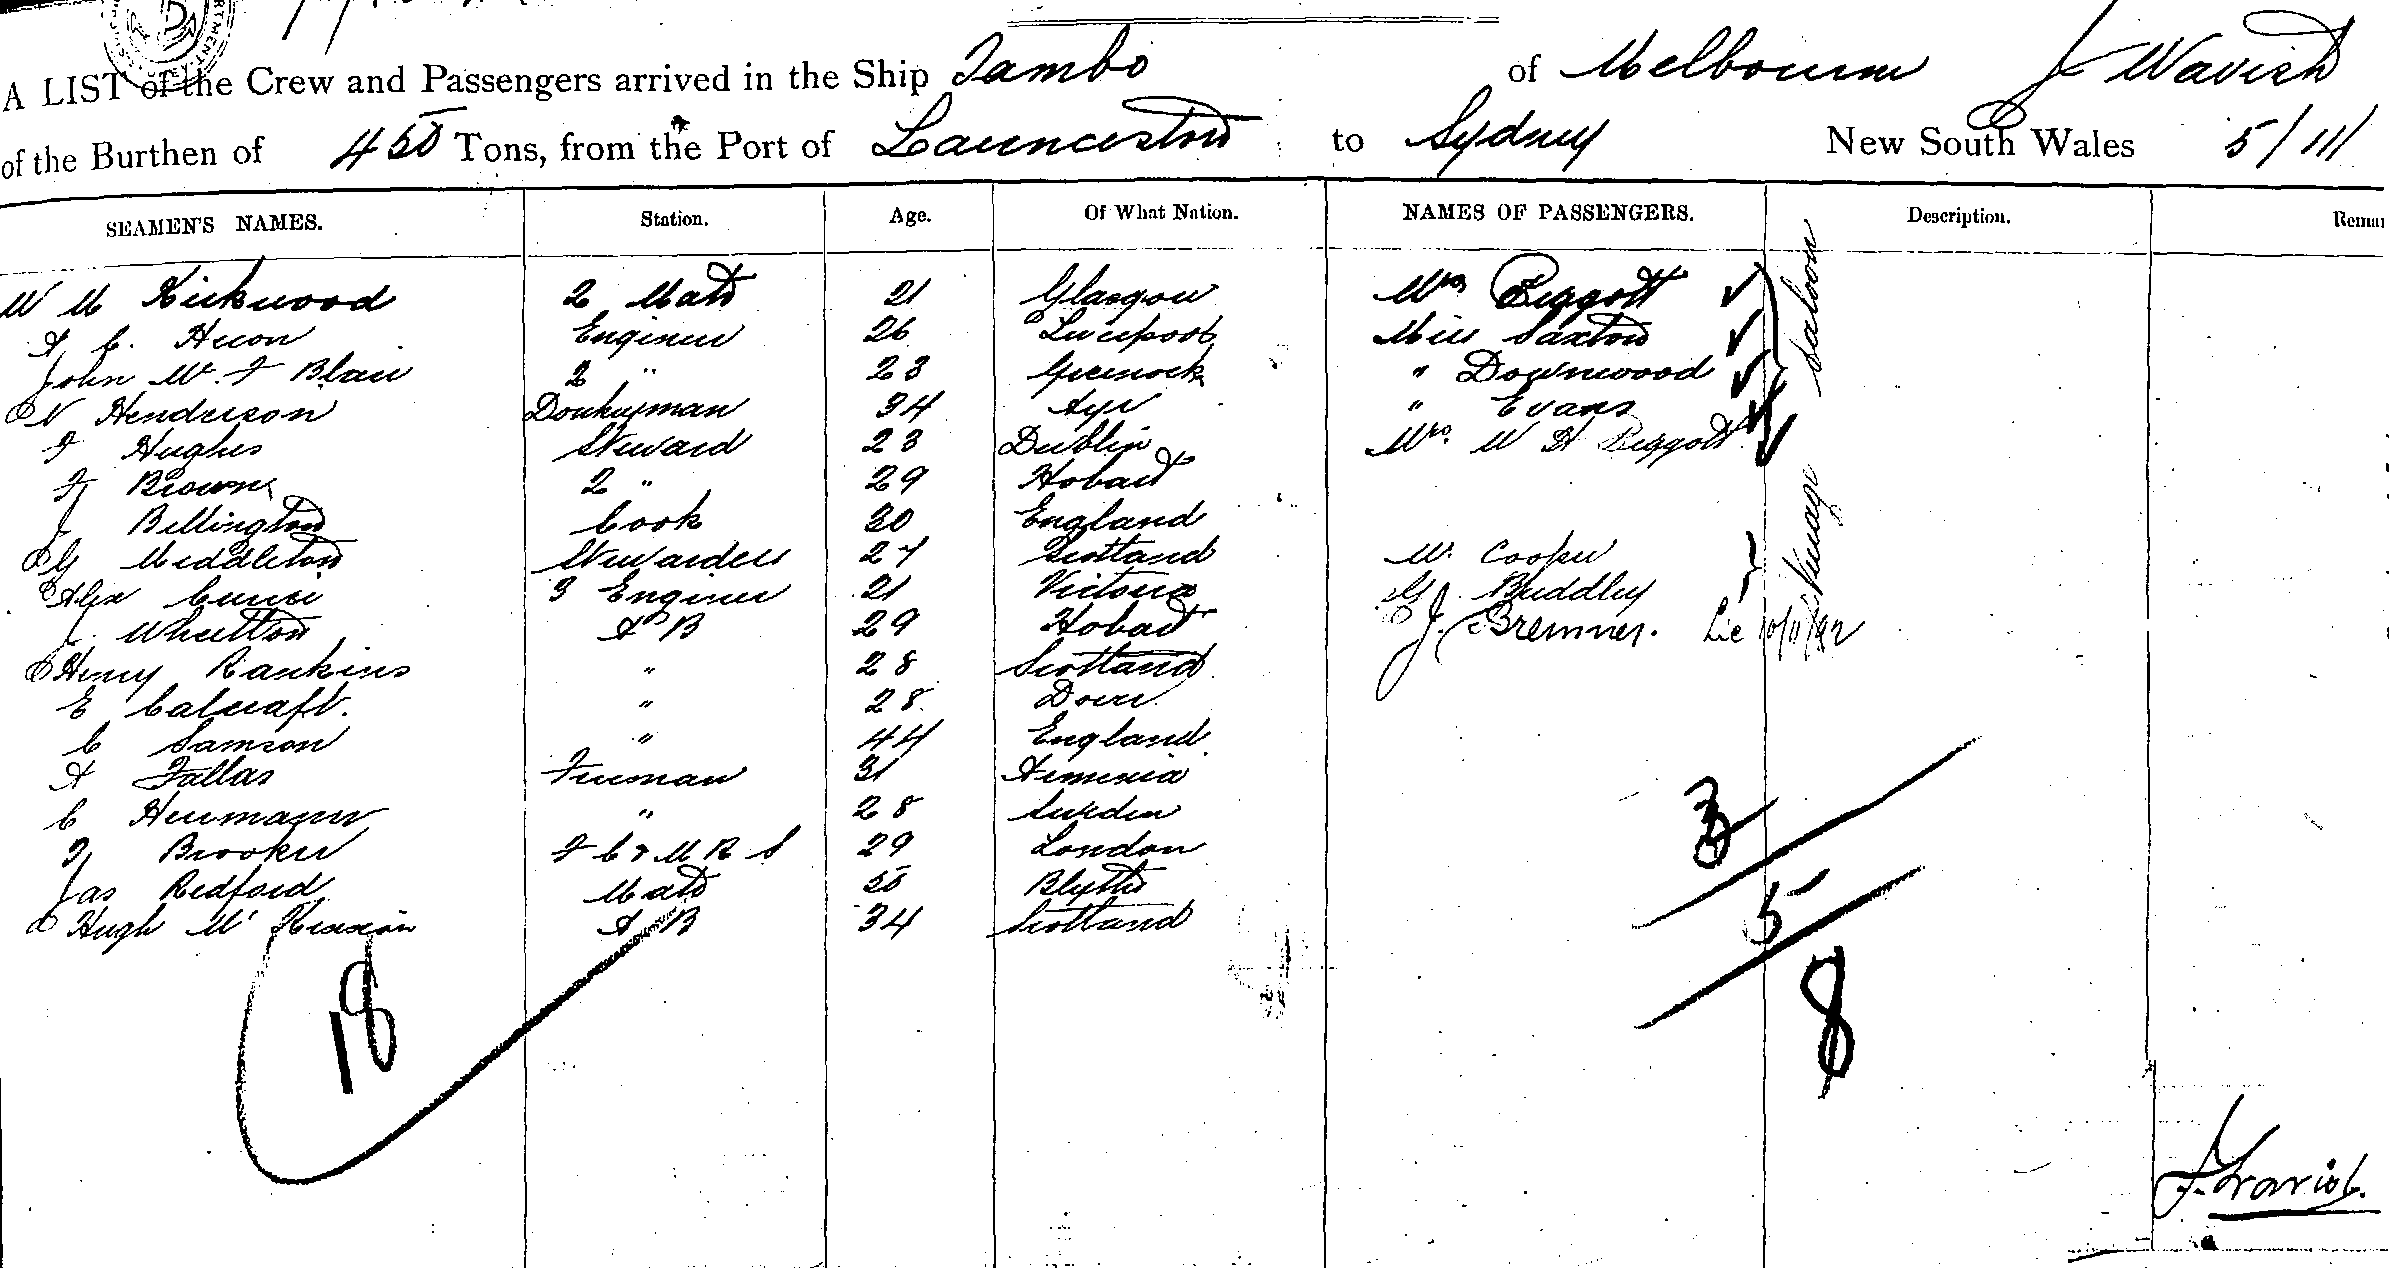 A LIST of the Crew and Passengers arrived in the Ship Tambo of Melbourne J Wavish
of the Burthen of 450 Tons, from the Port of Launceston to Sydney New South Wales 5/11/
SEAMEN'S NAMES. Station. Age. Of What Nation. NAMES OF PASSENGERS. Description. Remar
W M Kirkwood 2 Mate 21 Glasgow Mrs Piggott Saloon
A C. Huon Engineer 26 Liverpool Miss Saxton
John W. F Blair 2 " 23 Greenock " Downwood
N Henderson Donkeyman 34 Ayr " Evans
F Hughes Steward 23 Dublin Mrs. W H Piggott
F Brown 2 " 29 Hobart
J Billington Cook 30 England Steerage
G Middleton Stewardess 27 Scotland W. Cooper
Alex Currie 3 Engineer 21 Victoria G. Buddley
J. Wheatton A B 29 Hobart J. Bremner. Lic 10/11/92
Henry Rankins " 28 Scotland
E Calcraft. " 28. Dover
C Samson " 44 England
A Fallas Fireman 31 Armenia
C Heumann " 28 Sweden
F Brooker F C & M R S 29 London
Jas Redford Mate 50 Blyth
Hugh Mc A B 34 Scotland
18
3
5
8
J. Wavish.